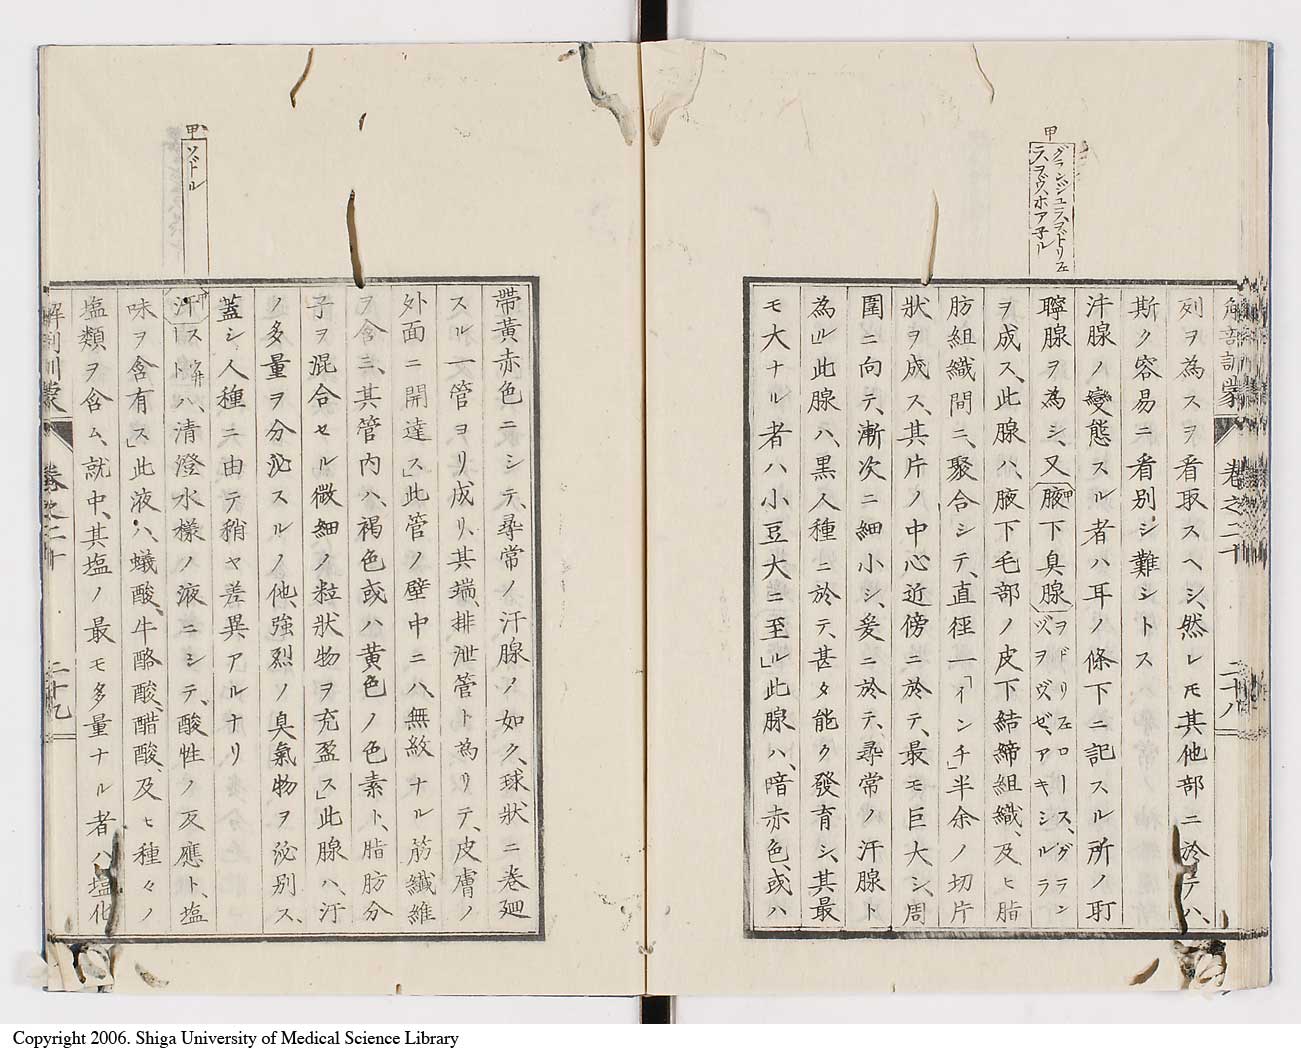 甲
グランジュラ、ヲドリフェ
ラ、ヲヅウ、ホア子ル
卷之二十
二十八
列ヲ為スヲ看取スヘシ、然レ𪜈其他部ニ於テハ、
斯ク容易ニ看別シ難シトス
汗腺ノ變態スル者ハ耳ノ條下ニ記スル所ノ耵
聹腺ヲ為シ、又腋下臭腺
ヲドリフェロース、グラン
ヅヲヅゼ、アキシルラ
ヲ成ス、此腺ハ、腋下毛部ノ皮下結締組織、及ヒ脂
肪組織間ニ、聚合シテ、直徑一「インチ」半余ノ切片
狀ヲ成ス、其片ノ中心近傍ニ於テ、最モ巨大シ、周
圍ニ向テ、漸次ニ細小シ、爰ニ於テ、尋常ノ汗腺ト
為ル」此腺ハ、黒人種ニ於テ、甚タ能ク發育シ、其最
モ大ナル者ハ小豆大ニ至ル」此腺ハ、暗赤色、或ハ
甲
ソドル
帶黃赤色ニシテ、尋常ノ汗腺ノ如ク、球狀ニ卷廻
スル一管ヨリ成リ、其端、排泄管ト為リテ、皮膚ノ
外面ニ開達ス」此管ノ壁中ニハ、無紋ナル筋纎維
ヲ含ミ、其管内ハ、褐色或ハ黄色ノ色素ト、脂肪分
子ヲ混合セル微細ノ粒狀物ヲ充盈ス」此腺ハ、汗
ノ多量ヲ分泌スルノ他、強烈ノ臭氣物ヲ泌別ス、
蓋シ人種ニ由テ稍ヤ差異アルナリ
汗ストハ、清澄水樣ノ液ニシテ、酸性ノ反應ト、塩
味ヲ含有ス」此液ハ、蟻酸、牛酪酸、醋酸、及ヒ種々ノ
塩類ヲ含ム、就中、其塩ノ最モ多量ナル者ハ、塩化
卷之二十
二十九